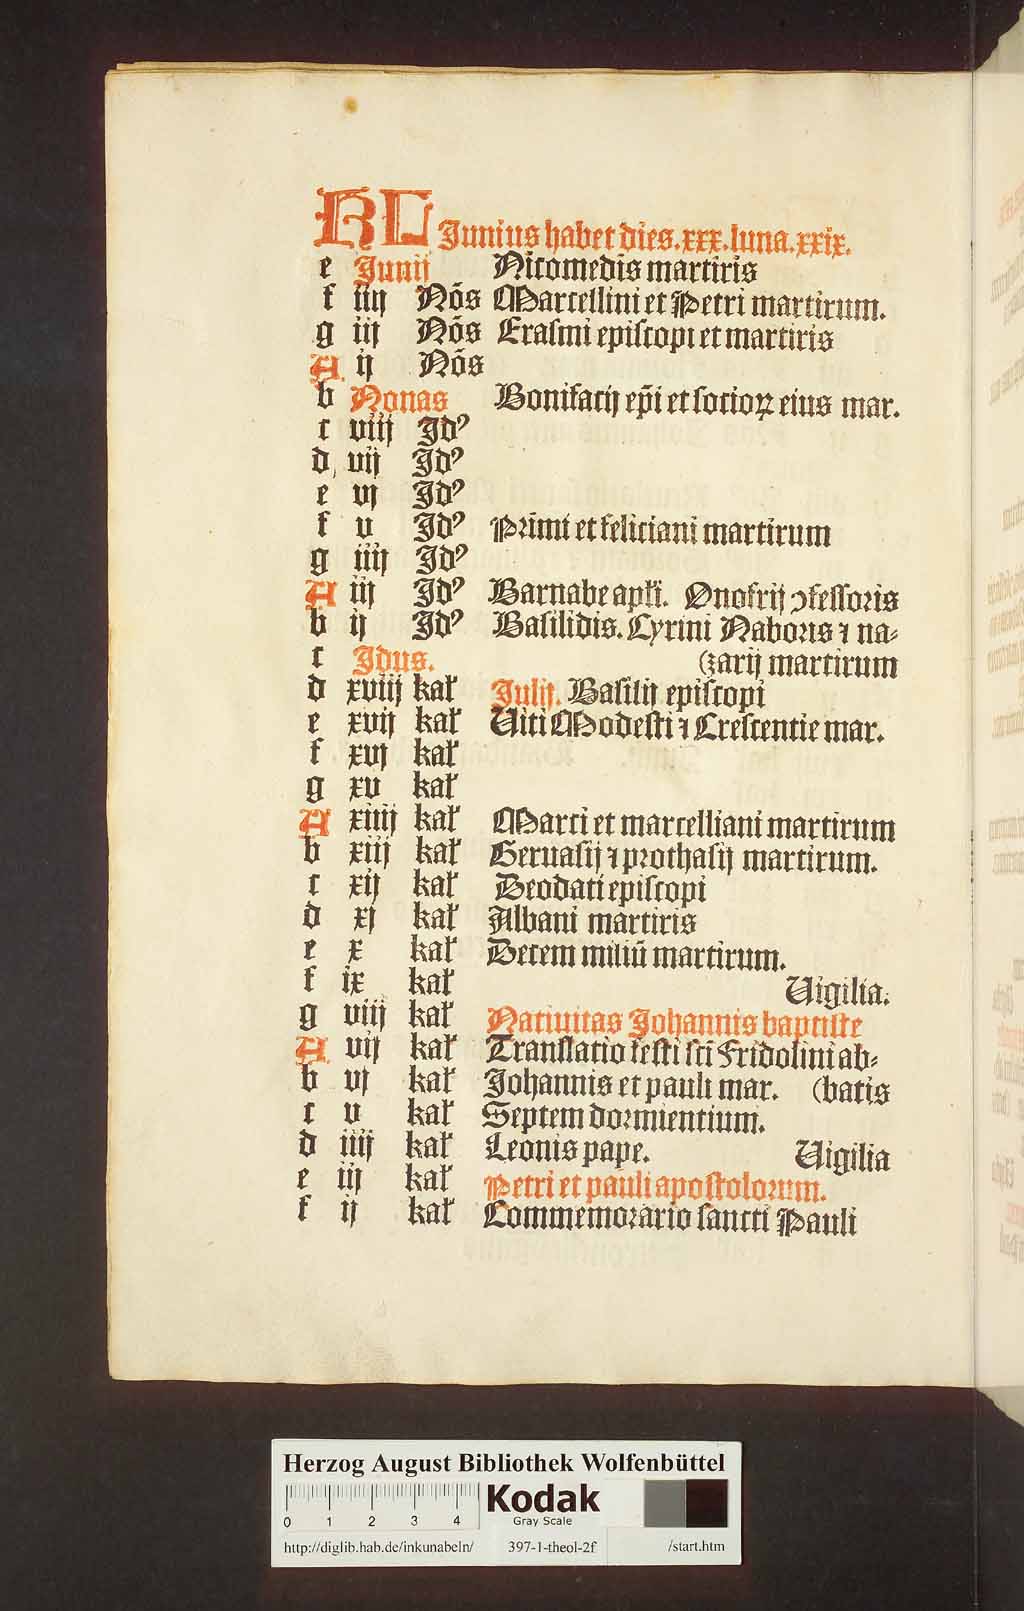 KL Junius habet dies.xxx.luna.xxix.
e Junij Nicomedis martiris
f iiij Nōs Marcellini et Petri martirum.
g iij Nōs Erasmi episcopi et martiris
A ij Nōs
b Nonas Bonifacij ep̄i et socioꝝ eius mar.
c viij Jdꝰ
d vij Jdꝰ
e vj Jdꝰ
f v Jdꝰ Primi et feliciani martirum
g iiij Jdꝰ
A iij Jdꝰ Barnabe apłi. Onofrij ꝯfessoris
b ij Jdꝰ Basilidis. Cyrini Naboris ⁊ na⸗
c Jdus. (zarij martirum
d xviij kał Julij. Basilij episcopi
e xvij kał Uiti Modesti ⁊ Crescentie mar.
f xvj kał
g xv kał
A xiiij kał Marci et marcelliani martirum
b xiij kał Geruasij ⁊ prothasij martirum.
c xij kał Deodati episcopi
d xj kał Albani martiris
e x kał Decem miliū martirum.
f ix kał Uigilia.
g viij kał Natiuitas Johannis baptiste
A vij kał Translatio festi sc̄i Fridolini ab⸗
b vj kał Johannis et pauli mar. (batis
c v kał Septem dormientium.
d iiij kał Leonis pape. Uigilia
e iij kał Petri et pauli apostolorum.
f ij kał Commemoracio sancti Pauli
Herzog August Bibliothek Wolfenbüttel
0 1 2 3 4
Kodak
Gray Scale
http://diglib.hab.de/inkunabeln/ 397-1-theol-2f /start.htm